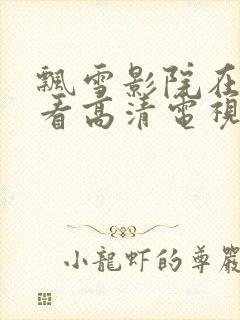 飄雪影院在
看高清電視
小龍虾的尊嚴